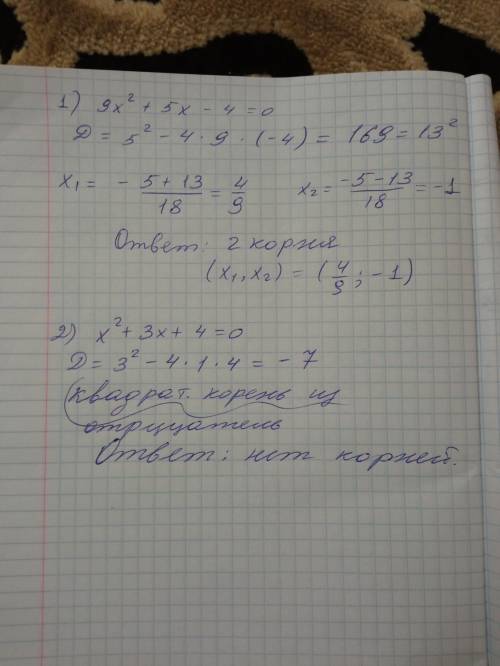 1) 9x² + 5x - 4 = 0
D = 5² - 4 · 9 · (-4) = 169 = 13²
x₁ = - 5+13/18 = 4/9    x₂ = -5-13/18 = -1
Ответ: 2 корня
(x₁, x₂) = (4/9; -1)
2) x² + 3x + 4 = 0
D = 3² - 4 · 1 · 4 = - 7
(квадрат. корень из
отрицатель
Ответ: нет корней.